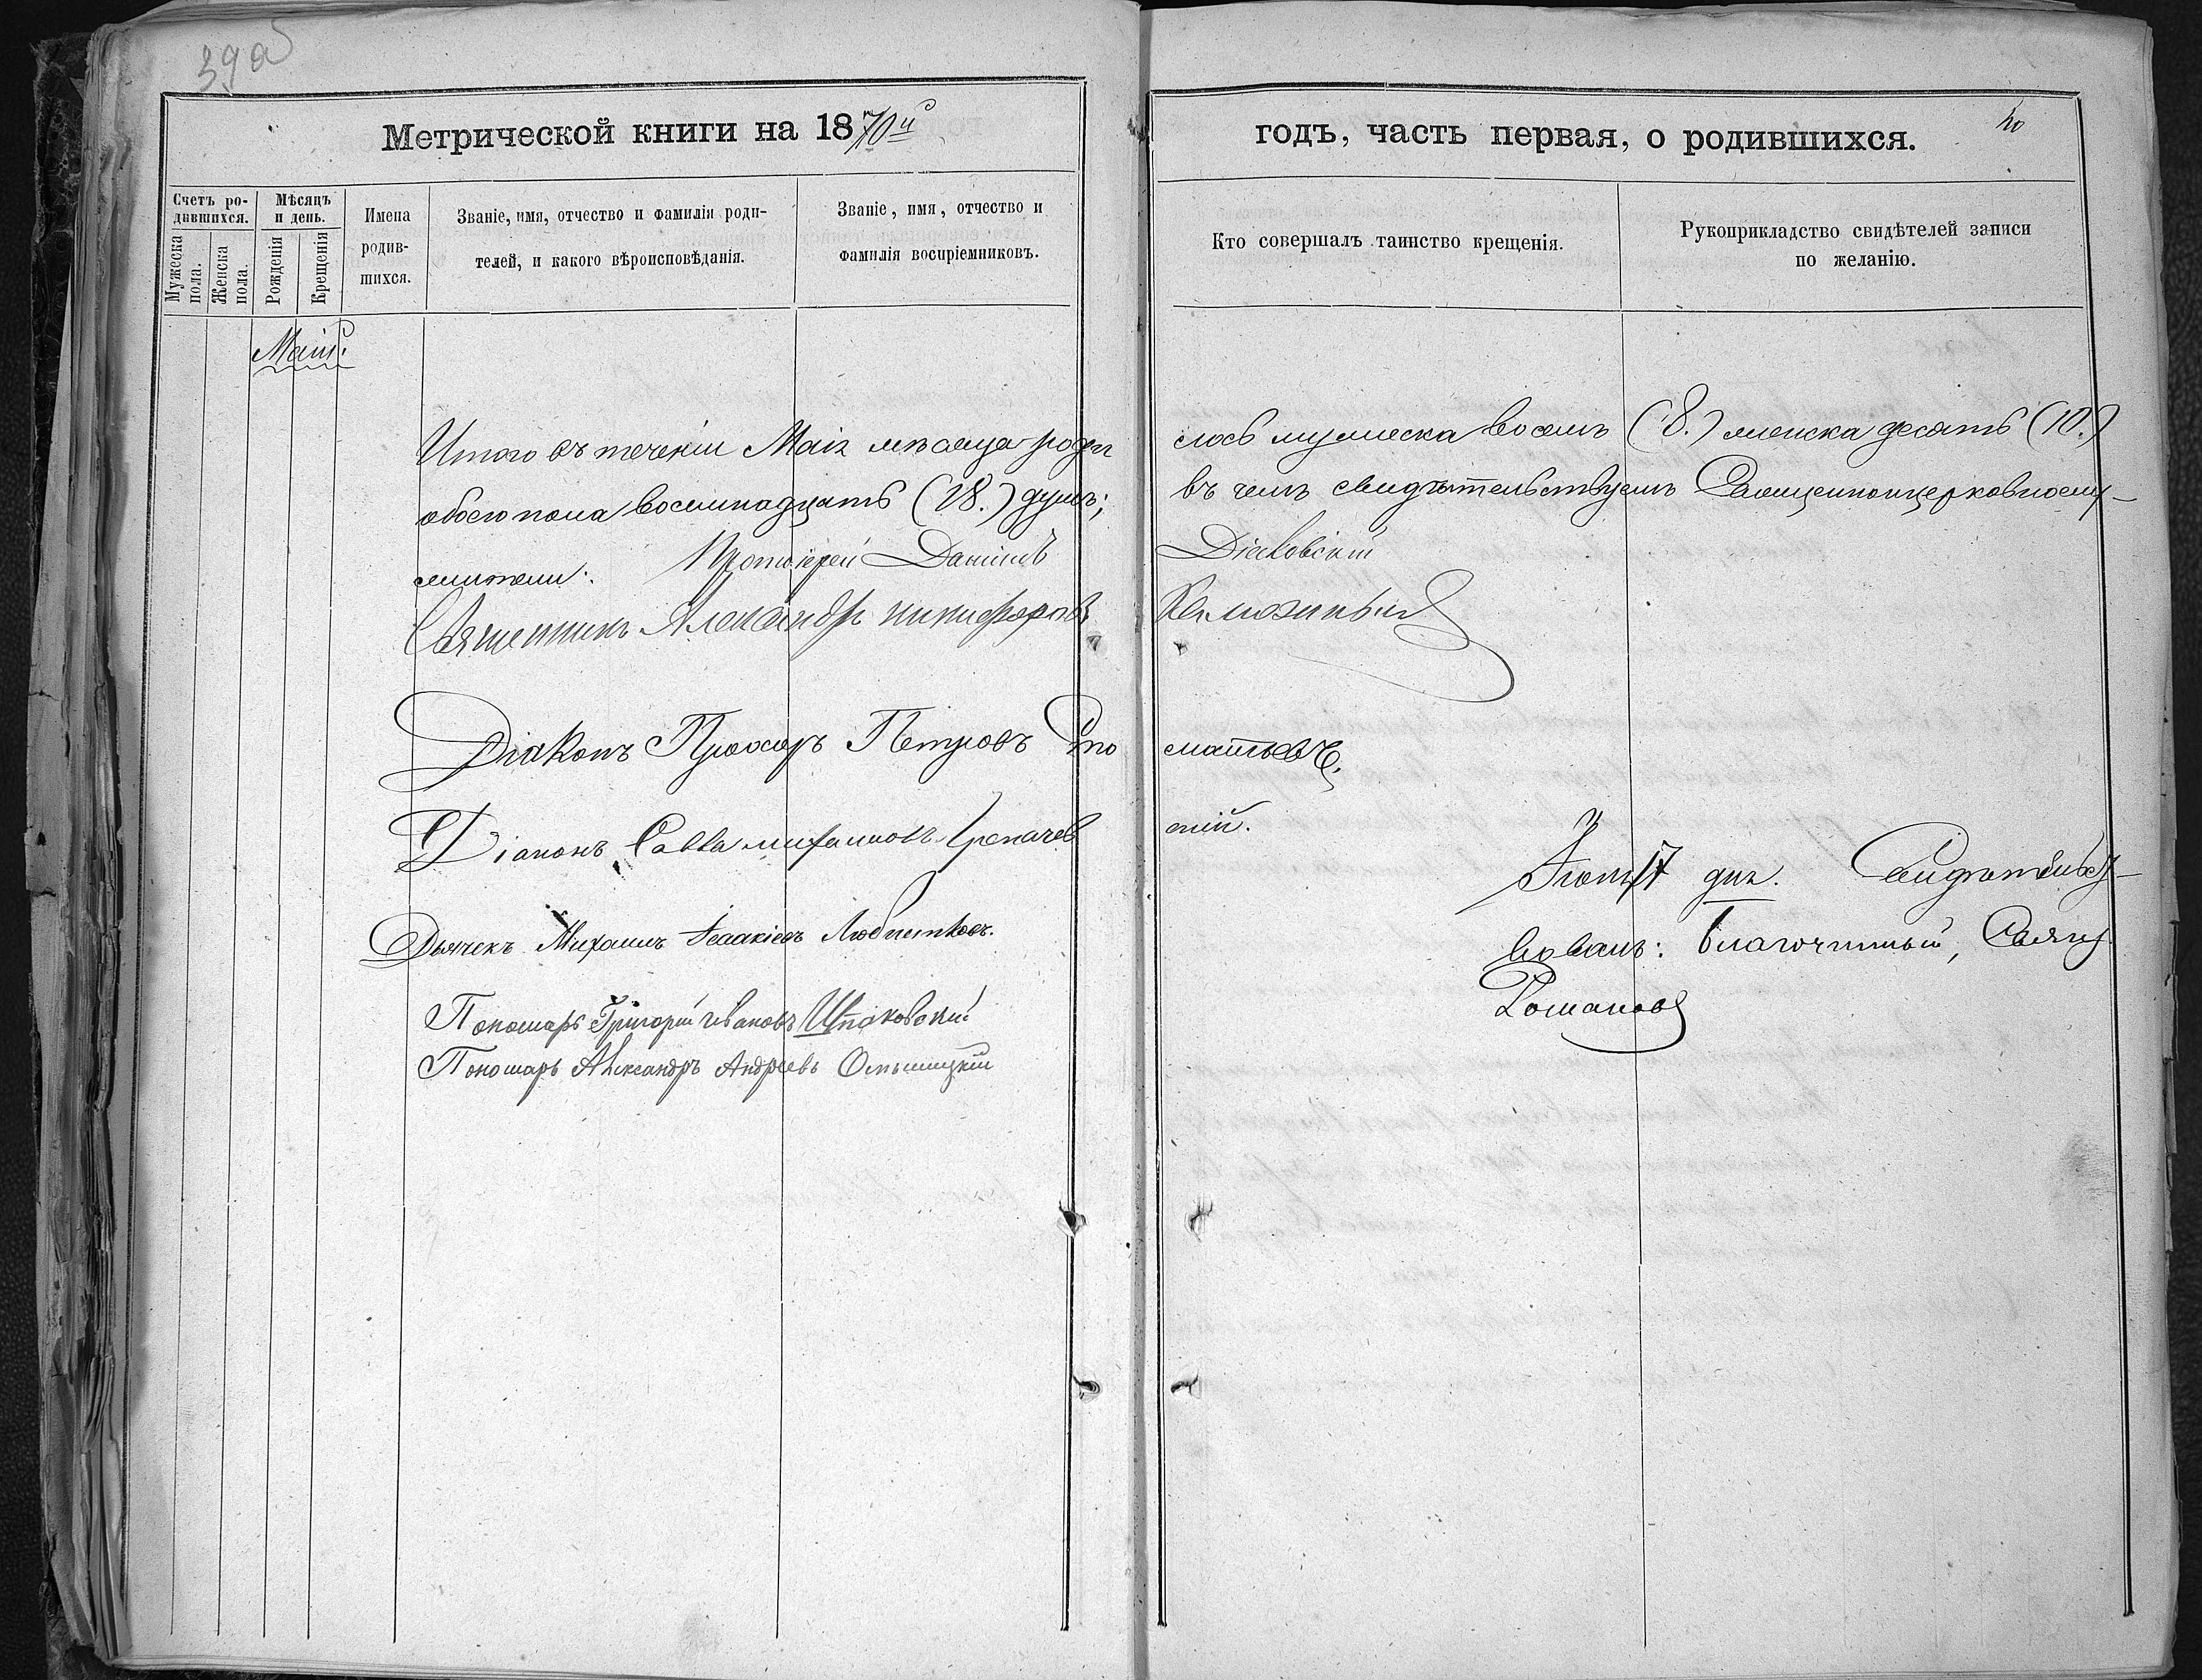 39 об
Метрической книги на 1870й годъ, часть первая, о родившихся.
40
Счетъ родившихся.
Мужеска пола.
Женска пола.
Мѣсяцъ и день.
Рожденія
Крещенія
Имена родившихся.
Званіе, имя, отчество и фамилія родителей, и какого вѣроисповѣданія.
Званіе, имя, отчество и фамилія воспріемниковъ.
Кто совершалъ таинство крещенія.
Рукоприкладство свидѣтелей записи по желанію.
Маій
Итого въ теченіи Маія мѣсяца родилось мужеска восемь (8.) женска десять (10.)
обоего пола восемнадцать (18.) душъ; въ чемъ свидѣтельствуемъ Священноцерковнослу-
жители: Протоіерей Даніилъ Діаковскій
Священникъ Александръ Никифоровъ
Діаконъ Прохоръ Петровъ Стоматьевъ.
Діаконъ Савва Михаиловъ
Дьячекъ Михаилъ Ісаакіевъ
Пономарь Григорій Ивановъ Шпаковскій
Пономарь Александръ Андреевъ
Іюня 17 дня. Свидѣтельст-
вовалъ: Благочинный, Свящ.
Романов